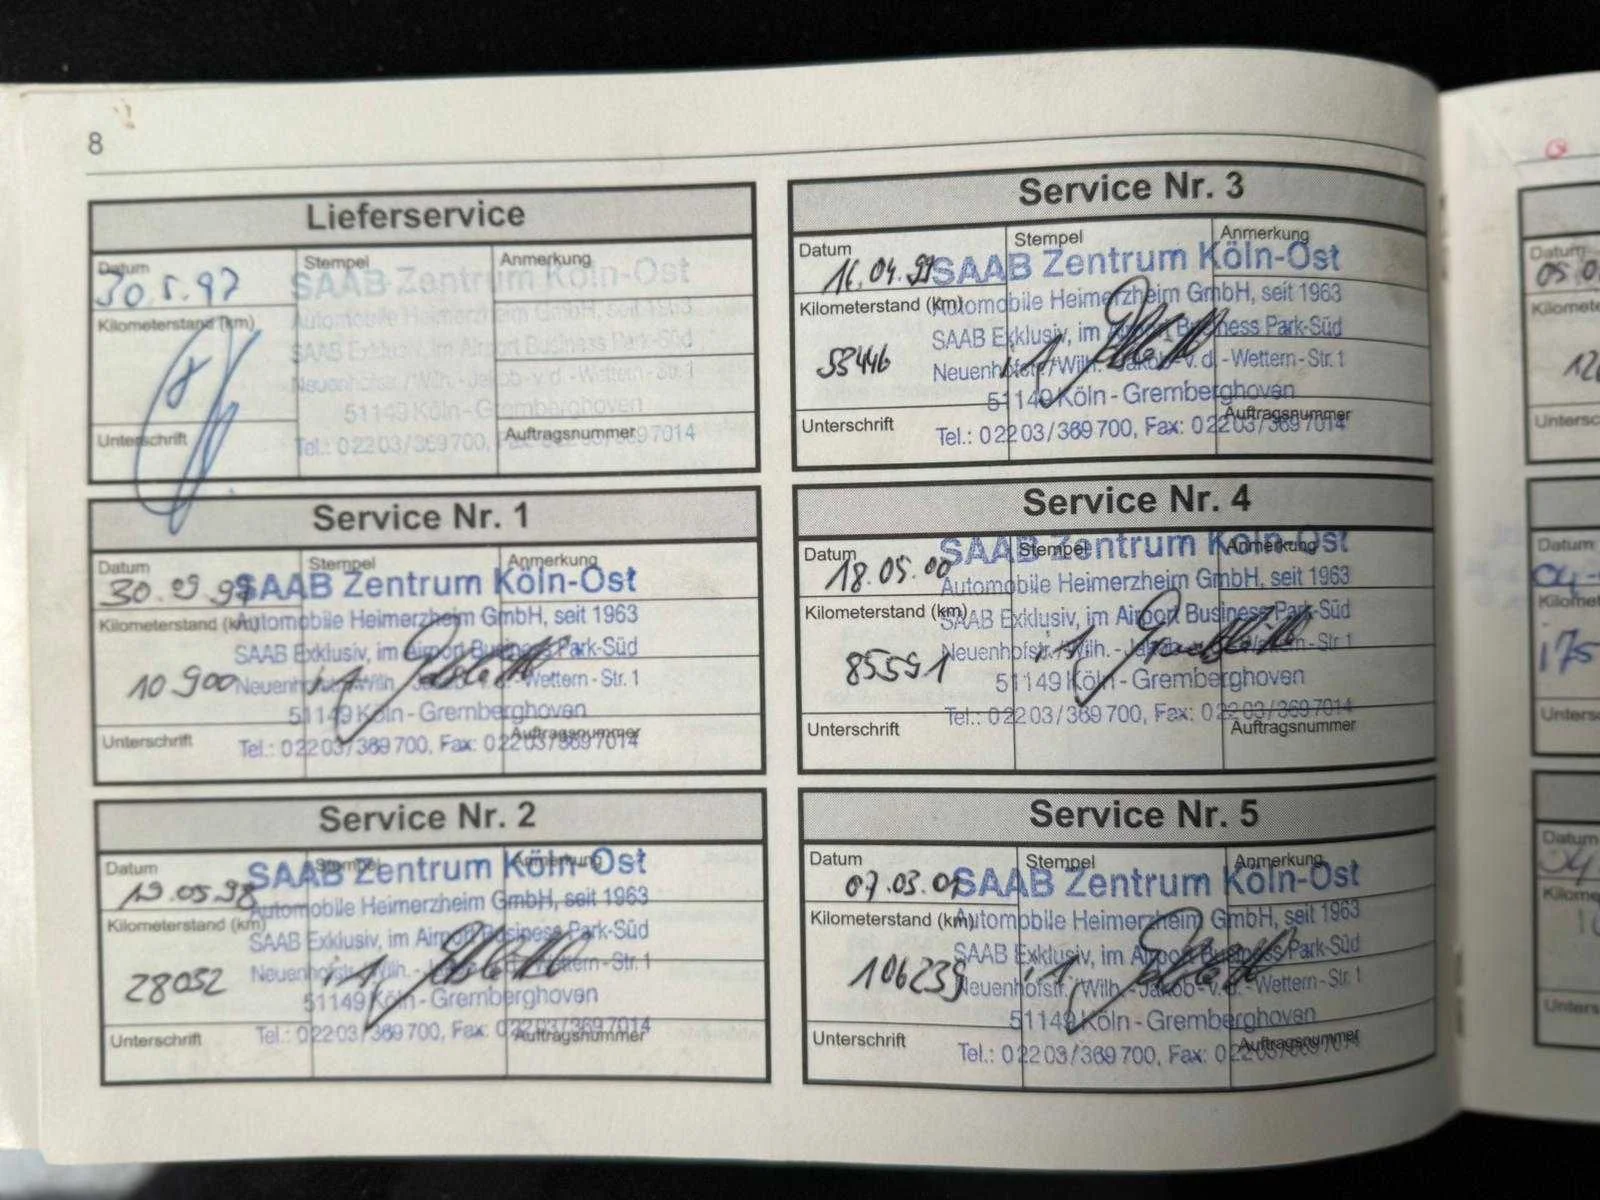 8
Lieferservice
Datum
Stempel
Anmerkung
30.5.97
SAAB Zentrum Köln-Ost
Automobile Heimerzheim GmbH, seit 1963
Kilometerstand (km)
SAAB Exklusiv, im Airport Business Park-Süd
Neuenhofstr./Wilh.-Jakob-v.d.-Wettern-Str. 1
51149 Köln-Gremberghoven
Unterschrift
Auftragsnummer
Tel.: 02203/369700, Fax: 02203/3697014
Service Nr. 1
Datum
Stempel
Anmerkung
30.09.97
SAAB Zentrum Köln-Ost
Kilometerstand (km)
Automobile Heimerzheim GmbH, seit 1963
SAAB Exklusiv, im Airport Business Park-Süd
10900
Neuenhofstr./Wilh.-Jakob-v.d.-Wettern-Str. 1
51149 Köln-Gremberghoven
Unterschrift
Auftragsnummer
Tel.: 02203/369700, Fax: 02203/3697014
Service Nr. 2
Datum
Stempel
Anmerkung
19.05.98
SAAB Zentrum Köln-Ost
Automobile Heimerzheim GmbH, seit 1963
Kilometerstand (km)
SAAB Exklusiv, im Airport Business Park-Süd
28052
Neuenhofstr./Wilh.-Jakob-v.d.-Wettern-Str. 1
51149 Köln-Gremberghoven
Unterschrift
Tel.: 02203/369700, Fax: 02203/3697014
Auftragsnummer
Service Nr. 3
Datum
Stempel
Anmerkung
16.04.99
SAAB Zentrum Köln-Ost
Kilometerstand (km)
Automobile Heimerzheim GmbH, seit 1963
SAAB Exklusiv, im Airport Business Park-Süd
53446
Neuenhofstr./Wilh.-Jakob-v.d.-Wettern-Str. 1
51149 Köln-Gremberghoven
Unterschrift
Auftragsnummer
Tel.: 02203/369700, Fax: 02203/3697014
Service Nr. 4
Datum
Stempel
Anmerkung
18.05.00
SAAB Zentrum Köln-Ost
Automobile Heimerzheim GmbH, seit 1963
Kilometerstand (km)
SAAB Exklusiv, im Airport Business Park-Süd
85591
Neuenhofstr./Wilh.-Jakob-v.d.-Wettern-Str. 1
51149 Köln-Gremberghoven
Tel.: 02203/369700, Fax: 02203/3697014
Unterschrift
Auftragsnummer
Service Nr. 5
Datum
Stempel
Anmerkung
07.03.01
SAAB Zentrum Köln-Ost
Kilometerstand (km)
Automobile Heimerzheim GmbH, seit 1963
SAAB Exklusiv, im Airport Business Park-Süd
106239
Neuenhofstr./Wilh.-Jakob-v.d.-Wettern-Str. 1
51149 Köln-Gremberghoven
Unterschrift
Auftragsnummer
Tel.: 02203/369700, Fax: 02203/3697014
Datum
Datum
175
Datum